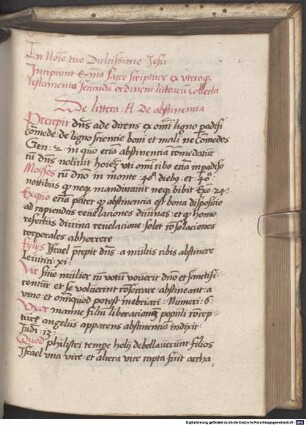 In Noīe tuo Dulcissime Jesu
Incipiunt Exēpla sacre scripture ex utroqȝ
testamento secundū ordinem litterarū collecta
De littera A De abstinentia
Precepit dn̄s ade dicens ex om̄i ligno padisi
comede de ligno sciencie boni et mali ne comedes
Gen: 2 in quo erāt abstinentia
tn̄ dn̄s noluit
Moyses cū dn̄o in monte 40 diebȝ et 40
noctibus qȝ neqȝ manducavit neqȝ bibit Exo: 24:
Ex quo patet qȝ abstinentia est bona disposicio
ad capiendas revelaciones divinas et qȝ homo
refectus divina revelacione solet cōsolaciones
corporales abhorrere
Filijs Israel precepit dn̄s a multis cibis abstinere
Levitici: xi:
Vir sive mulier cū votū voverit dn̄o et sanctifi
centur et se voluerint cōsecrare abstineant a
vino et om̄i quod potest inebriari Numeri: 6
Uxor manue filiū liberacionis populi cōcep
tura angelus apparens abstinentiā indixit
Judi: 13:
Quod philistei tempe helij debellaverunt filios
Israel una vice et altera vice capta fuit archa